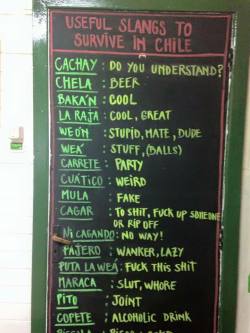 USEFUL SLANGS TO
SURVIVE IN CHILE
CACHAY : DO YOU UNDERSTAND?
CHELA : BEER
BAKA'N : COOL
LA RAJA : COOL, GREAT
WEO'N : STUPID, MATE, DUDE
WEA' : STUFF, (BALLS)
CARRETE : PARTY
CUA'TICO : WEIRD
MULA : FAKE
CAGAR : TO SHIT, FUCK UP SOMEONE
OR RIP OFF
NI CAGANDO : NO WAY!
PAJERO : WANKER, LAZY
PUTA LA WEA : FUCK THIS SHIT
MARACA : SLUT, WHORE
PITO : JOINT
COPETE : ALCOHOLIC DRINK